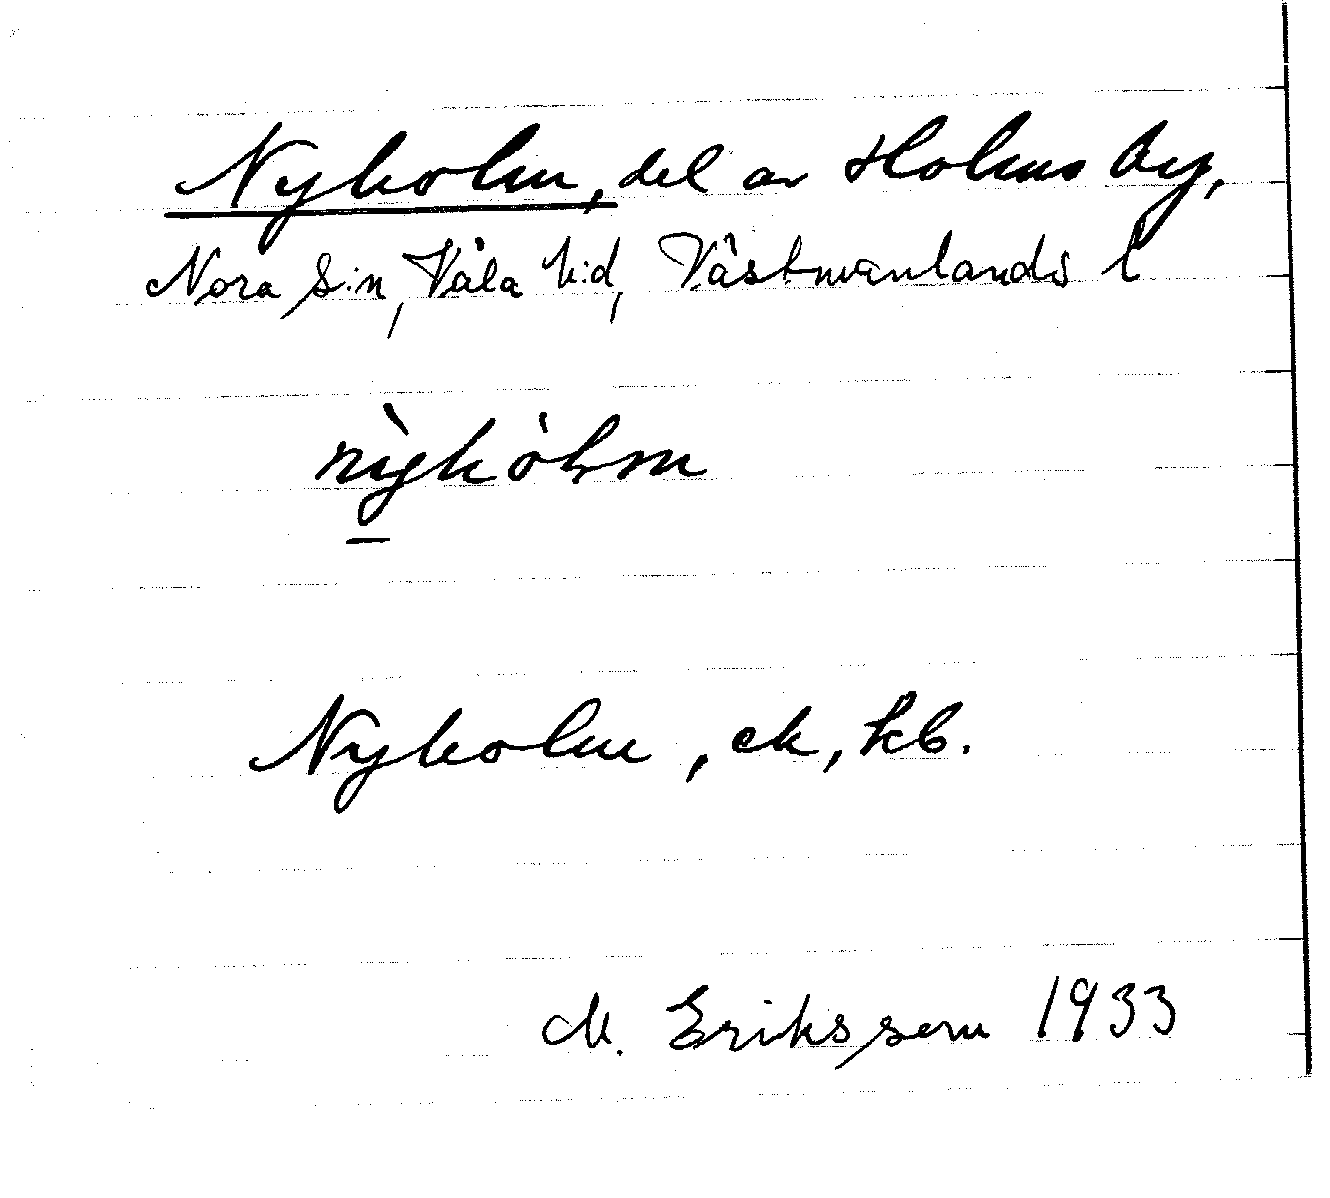 Nyholm, del av Holms by,
Nora s:n, Våla h:d, Västmanlands l
nỳhòlm
Nyholm, ek, kb.
M. Eriksson 1933